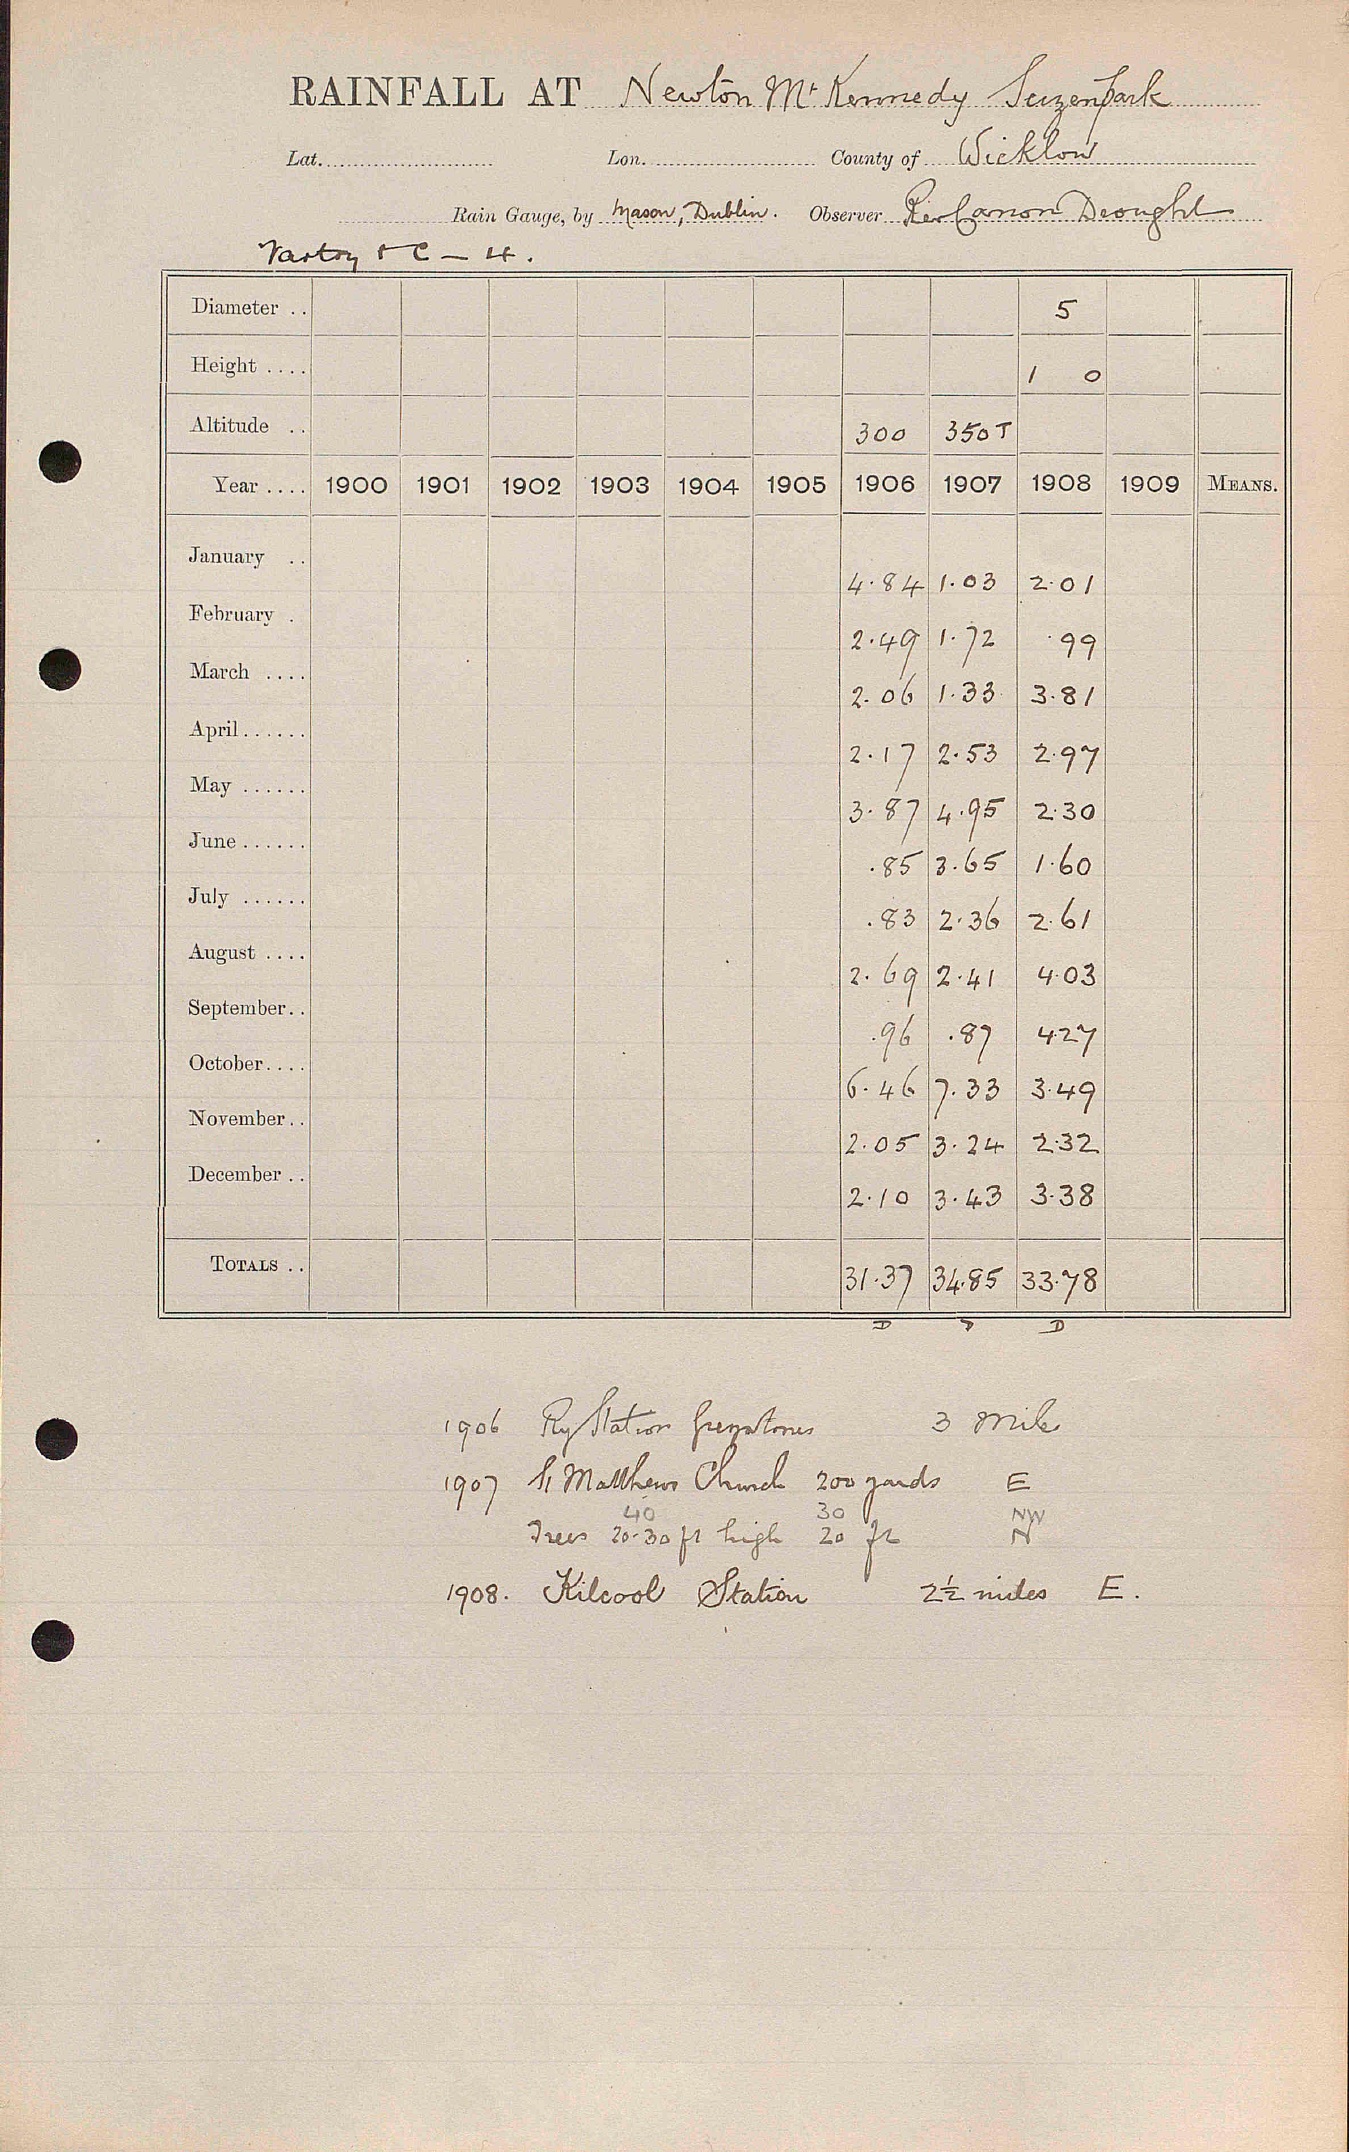 RAINFALL AT Newton Mt Kennedy Seizenpark
Lat. Lon. County of Wicklow
Rain Gauge, by Mason, Dublin. Observer Rev Canon Drought
Vartry & C - 4.
Diameter .. 5
Height .... 1 0
Altitude .. 300 350T
Year .... 1900 1901 1902 1903 1904 1905 1906 1907 1908 1909 MEANS.
January .. 4.84 1.03 2.01
February . 2.49 1.72 .99
March .... 2.06 1.33 3.81
April...... 2.17 2.53 2.97
May ...... 3.87 4.95 2.30
June...... .85 3.65 1.60
July ...... .83 2.36 2.61
August .... 2.69 2.41 4.03
September.. .96 .87 4.27
October.... 6.46 7.33 3.49
November.. 2.05 3.24 2.32
December .. 2.10 3.43 3.38
TOTALS .. 31.37 34.85 33.78
D D D
1906 Ry Station Greystones 3 Mile
1907 St Matthews Church 200 yards E
40 30 NW
Trees 20-30 ft high 20 ft N
1908. Kilcool Station 2½ miles E.